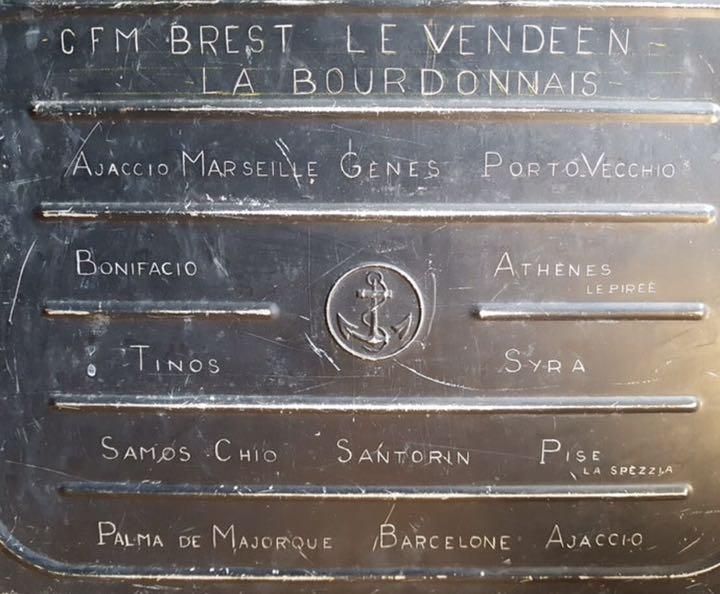 CFM BREST LE VENDEEN
LA BOURDONNAIS
AJACCIO MARSEILLE GÊNES PORTO-VECCHIO
BONIFACIO ATHÈNES
LE PIRÉE
TINOS SYRA
SAMOS CHIO SANTORIN PISE
LA SPEZZIA
PALMA DE MAJORQUE BARCELONE AJACCIO